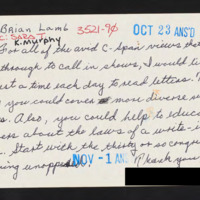 Brian Lamb
3521-90
OCT 23 ANS'D
C: SARA T.
K. Murphy
For all of the avid C-Span viewers tho
through to call in shows, I would li
set a time each day to read letters. T
you could cover more diverse
Also, you could help to educ
ers about the laws of a write-
Start with the thirty or so cong
ing unoppo
NOV - 1 AN
Thank you